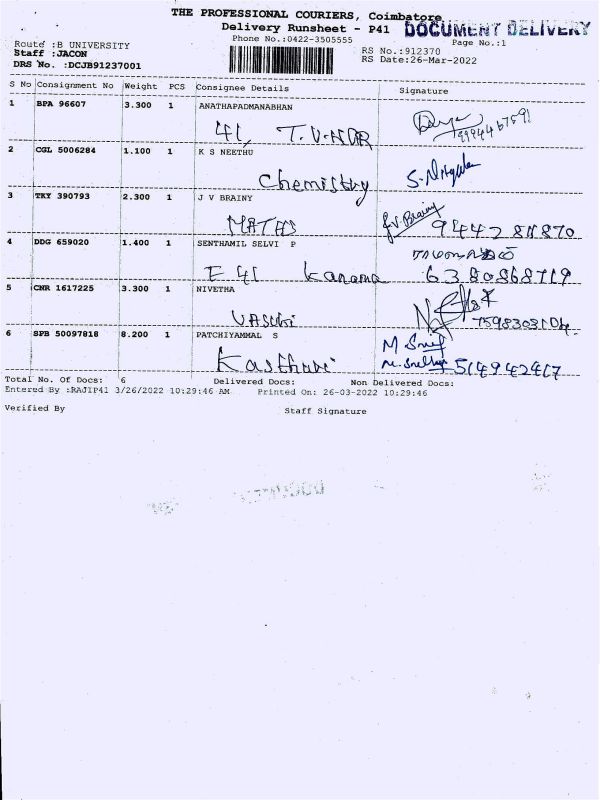 THE PROFESSIONAL COURIERS, Coimbatore
Delivery Runsheet - P41
DOCUMENT DELIVERY
Phone No.:0422-3505555
Page No.:1
Route :B UNIVERSITY
Staff :JACON
DRS No. :DCJB91237001
RS No.:912370
RS Date:26-Mar-2022
S No Consignment No Weight PCS Consignee Details Signature
1 BPA 96607 3.300 1 ANATHAPADMANABHAN
41, T.V.NGR
2 CGL 5006284 1.100 1 K S NEETHU
Chemistry
3 TKY 390793 2.300 1 J V BRAINY
MATHS J.V. Brainy
4 DDG 659020 1.400 1 SENTHAMIL SELVI P
E 41 6380868719
5 CNR 1617225 3.300 1 NIVETHA
6 SPB 50097818 8.200 1 PATCHIYAMMAL S
Kasthuri
Total No. Of Docs: 6 Delivered Docs: Non Delivered Docs:
Entered By :RAJIP41 3/26/2022 10:29:46 AM Printed On: 26-03-2022 10:29:46
Verified By Staff Signature